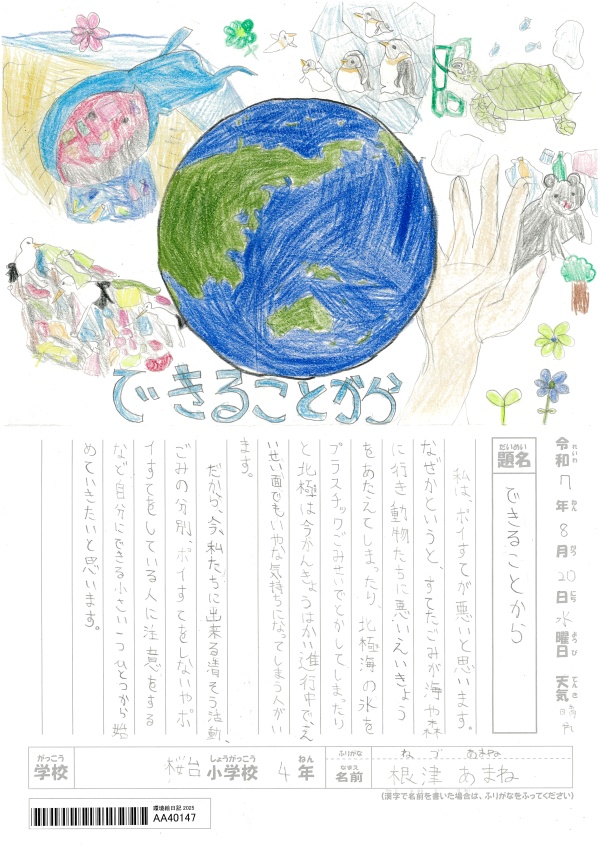 できることから
令和7年8月20日水曜日 天気晴れ
れいわ ねん がつ にち ようび てんき
だいめい
題名 できることから
私は、ポイすてが悪いと思います。
なぜかというと、すてたごみが海や森
に行き動物たちに悪いえいきょう
をあたえてしまったり、北極海の氷を
プラスチックごみせいでとかしてしまったり
と北極は今かんきょうはかい進行中で、え
いせい面でもいやな気持ちになってしまう人がい
ます。
だから、今、私たちに出来る清そう活動、
ごみの分別、ポイすてをしないやポ
イすてをしている人に注意をする
など自分にできる小さい一つひとつから始
めていきたいと思います。
がっこう しょうがっこう ねん ふりがな ね づ あまね
学校 桜台小学校 4年 なまえ 名前 根津 あまね
(漢字で名前を書いた場合は、ふりがなをふってください)
環境絵日記 2025
AA40147